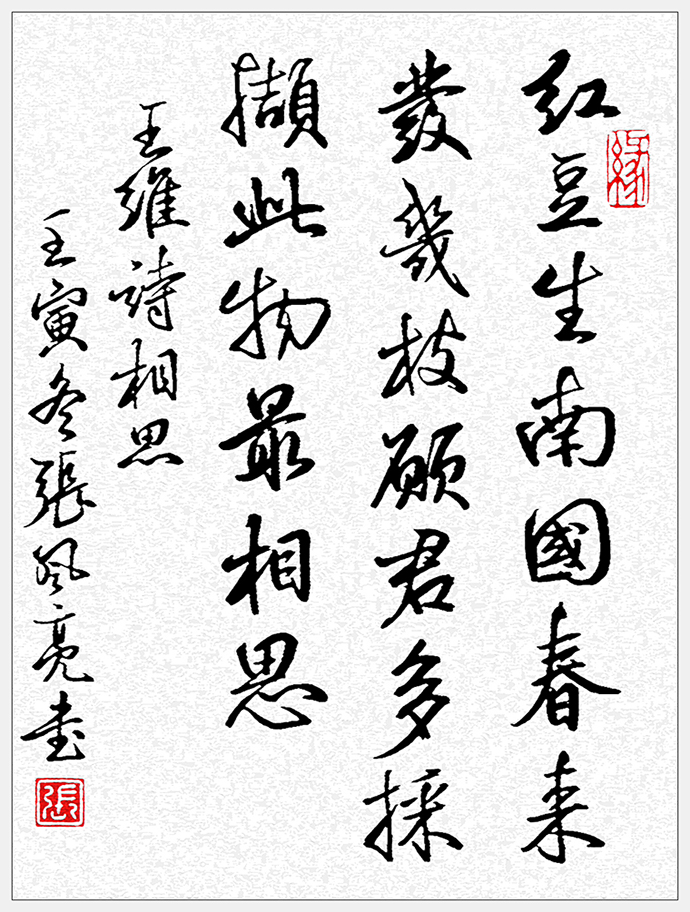 紅豆生南國春来
發幾枝願君多採
擷此物最相思
王維詩相思
壬寅冬張风亮书
缘
張